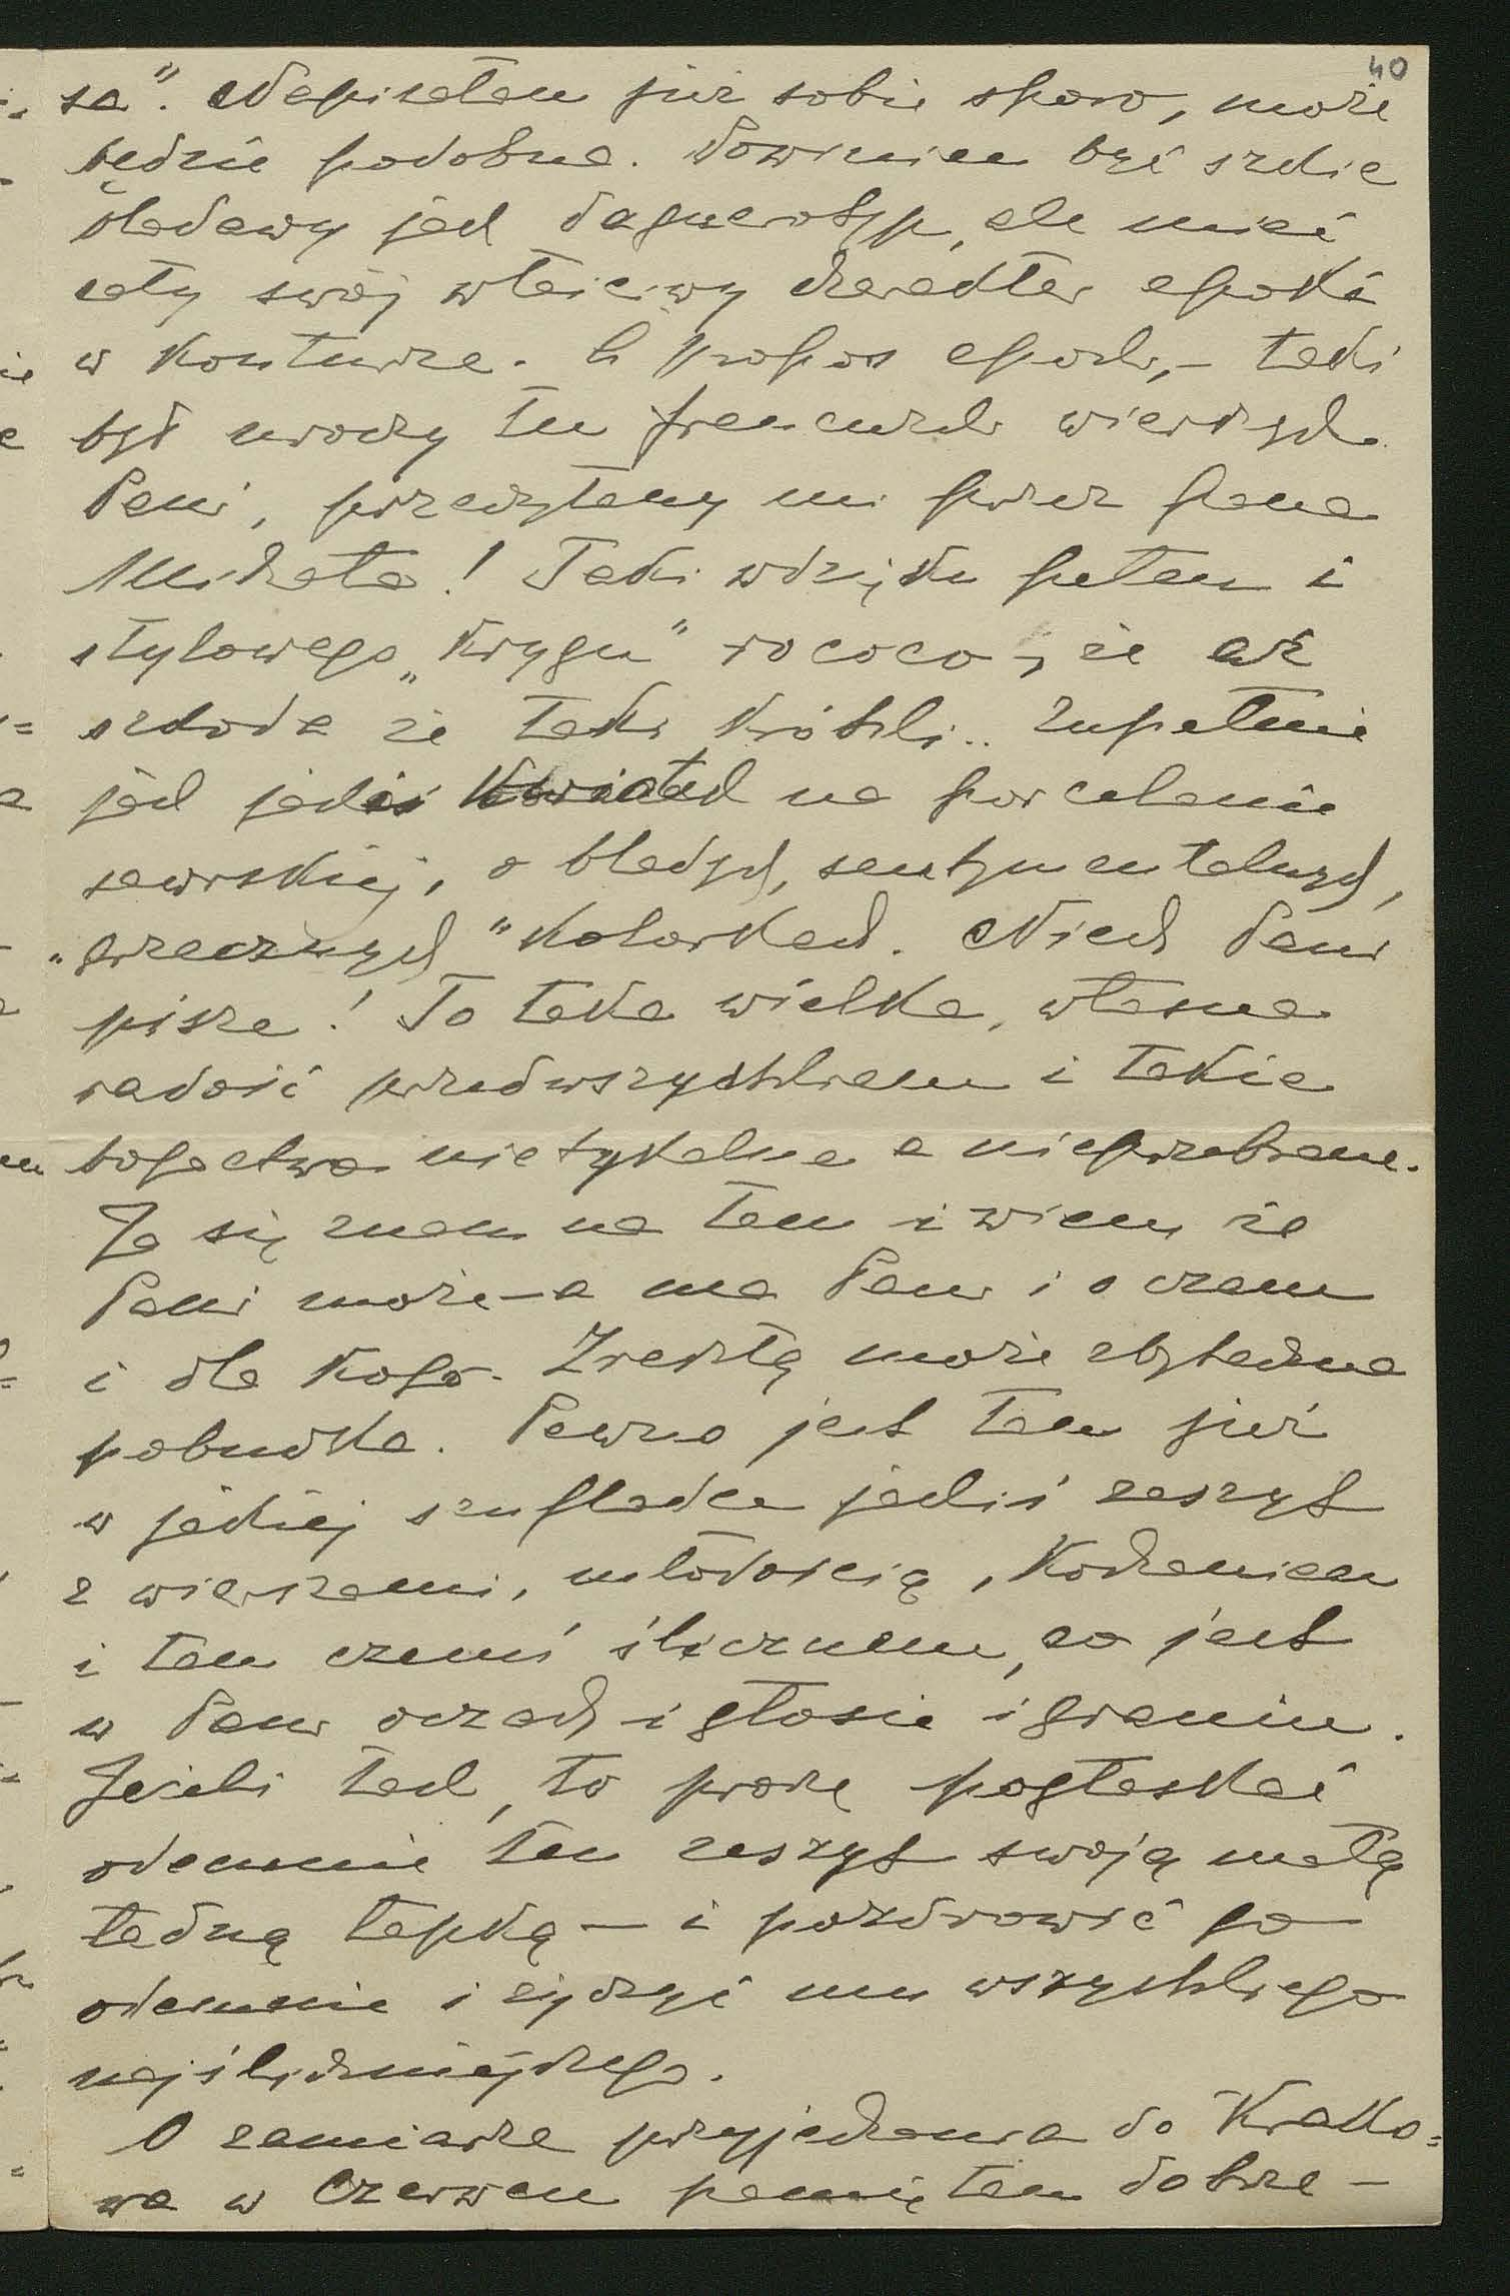 40
sa". Napisałam już sobie sporo, może
będzie podobna. Powinien być szkic
bladawy jak daguerotyp, ale mieć
cały swój właściwy charakter epoki
w konturze. à propos epoki, – taki
był uroczy ten francuski wierszyk
Pani, przeczytany mi przez pana
Michała! Taki wdzięku pełen i
stylowego „krygu" rococo, że aż
szkoda że taki krótki.. Zupełnie
jak jakiś kwiatek na porcelanie
sewrskiej, o bladych, sentymentalnych,
„grzecznych" kolorkach. Niech Pani
pisze! To taka wielka, własna
radość przedwszystkiem i takie
bogactwo nietykalne a nieprzebrane.
Ja się znam na tem i wiem, że
Pani może – a ma Pani i o czem
i dla kogo. Zresztą może zbyteczna
pobudka. Pewno jest tam już
w jakiej szufladce jakiś zeszyt
z wierszami, młodością, kochaniem
i tem czemś ślicznem, co jest
w Pani oczach i głosie i graniu.
Jeżeli tak, to proszę pogłaskać
odemnie ten zeszyt swoją małą
ładną łapką – i pozdrowić go
odemnie i życzyć mu wszystkiego
najśliczniejszego.
O zamiarze przyjechania do Krako=
wa w Czerwcu pamiętam dobrze –